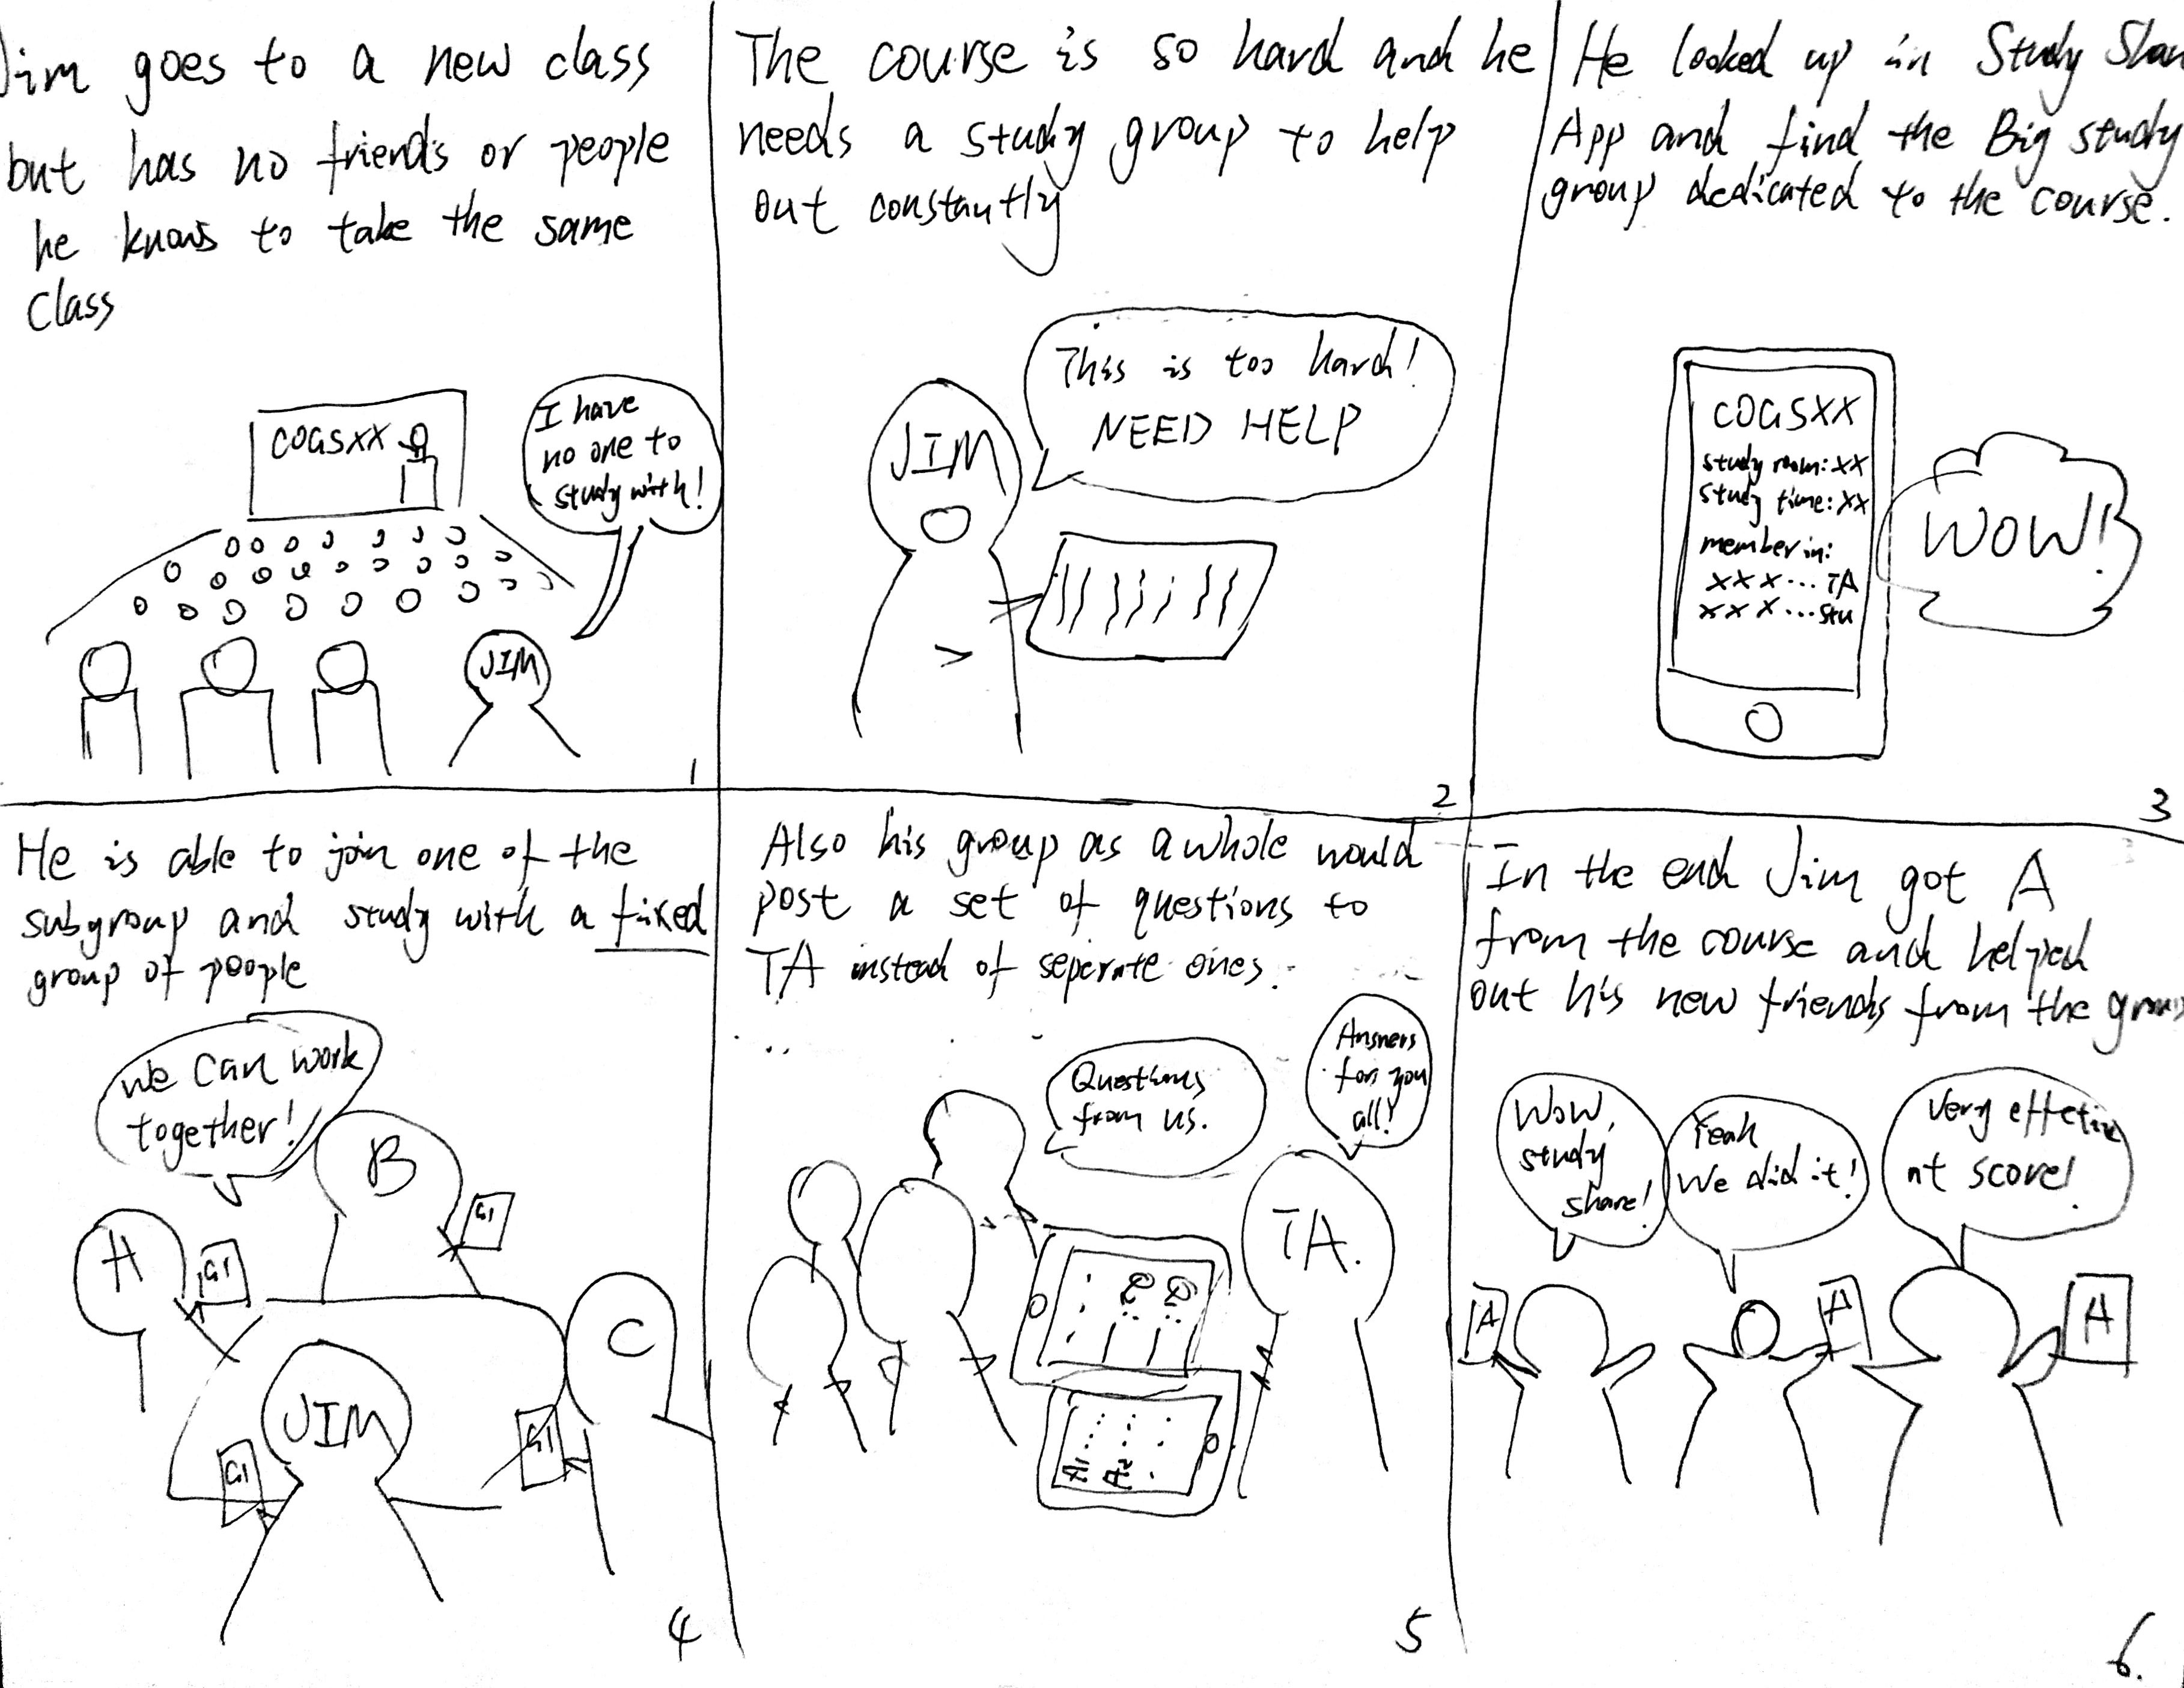 Jim goes to a new class
but has no friends or people
he knows to take the same
class
COGSXX
I have
no one to
study with!
JIM
1
The course is so hard and he
needs a study group to help
out constantly
This is too hard!
NEED HELP
JIM
2
He looked up in Study Shar
App and find the Big study
group dedicated to the course.
COGSXX
study room: XX
study time: XX
member in:
XXX... TA
XXX... stu
WOW!
3
He is able to join one of the
subgroup and study with a fixed
group of people
we can work
together!
B
G1
A
G1
C
JIM
G1
G1
4
Also his group as a whole would
post a set of questions to
TA instead of seperate ones.
Questions
from us.
Answers
for you
all!
TA.
5
In the end Jim got A
from the course and helped
out his new friends from the group
Wow,
study
share!
Yeah
We did it!
Very effective
nt score!
A
A
A
6.